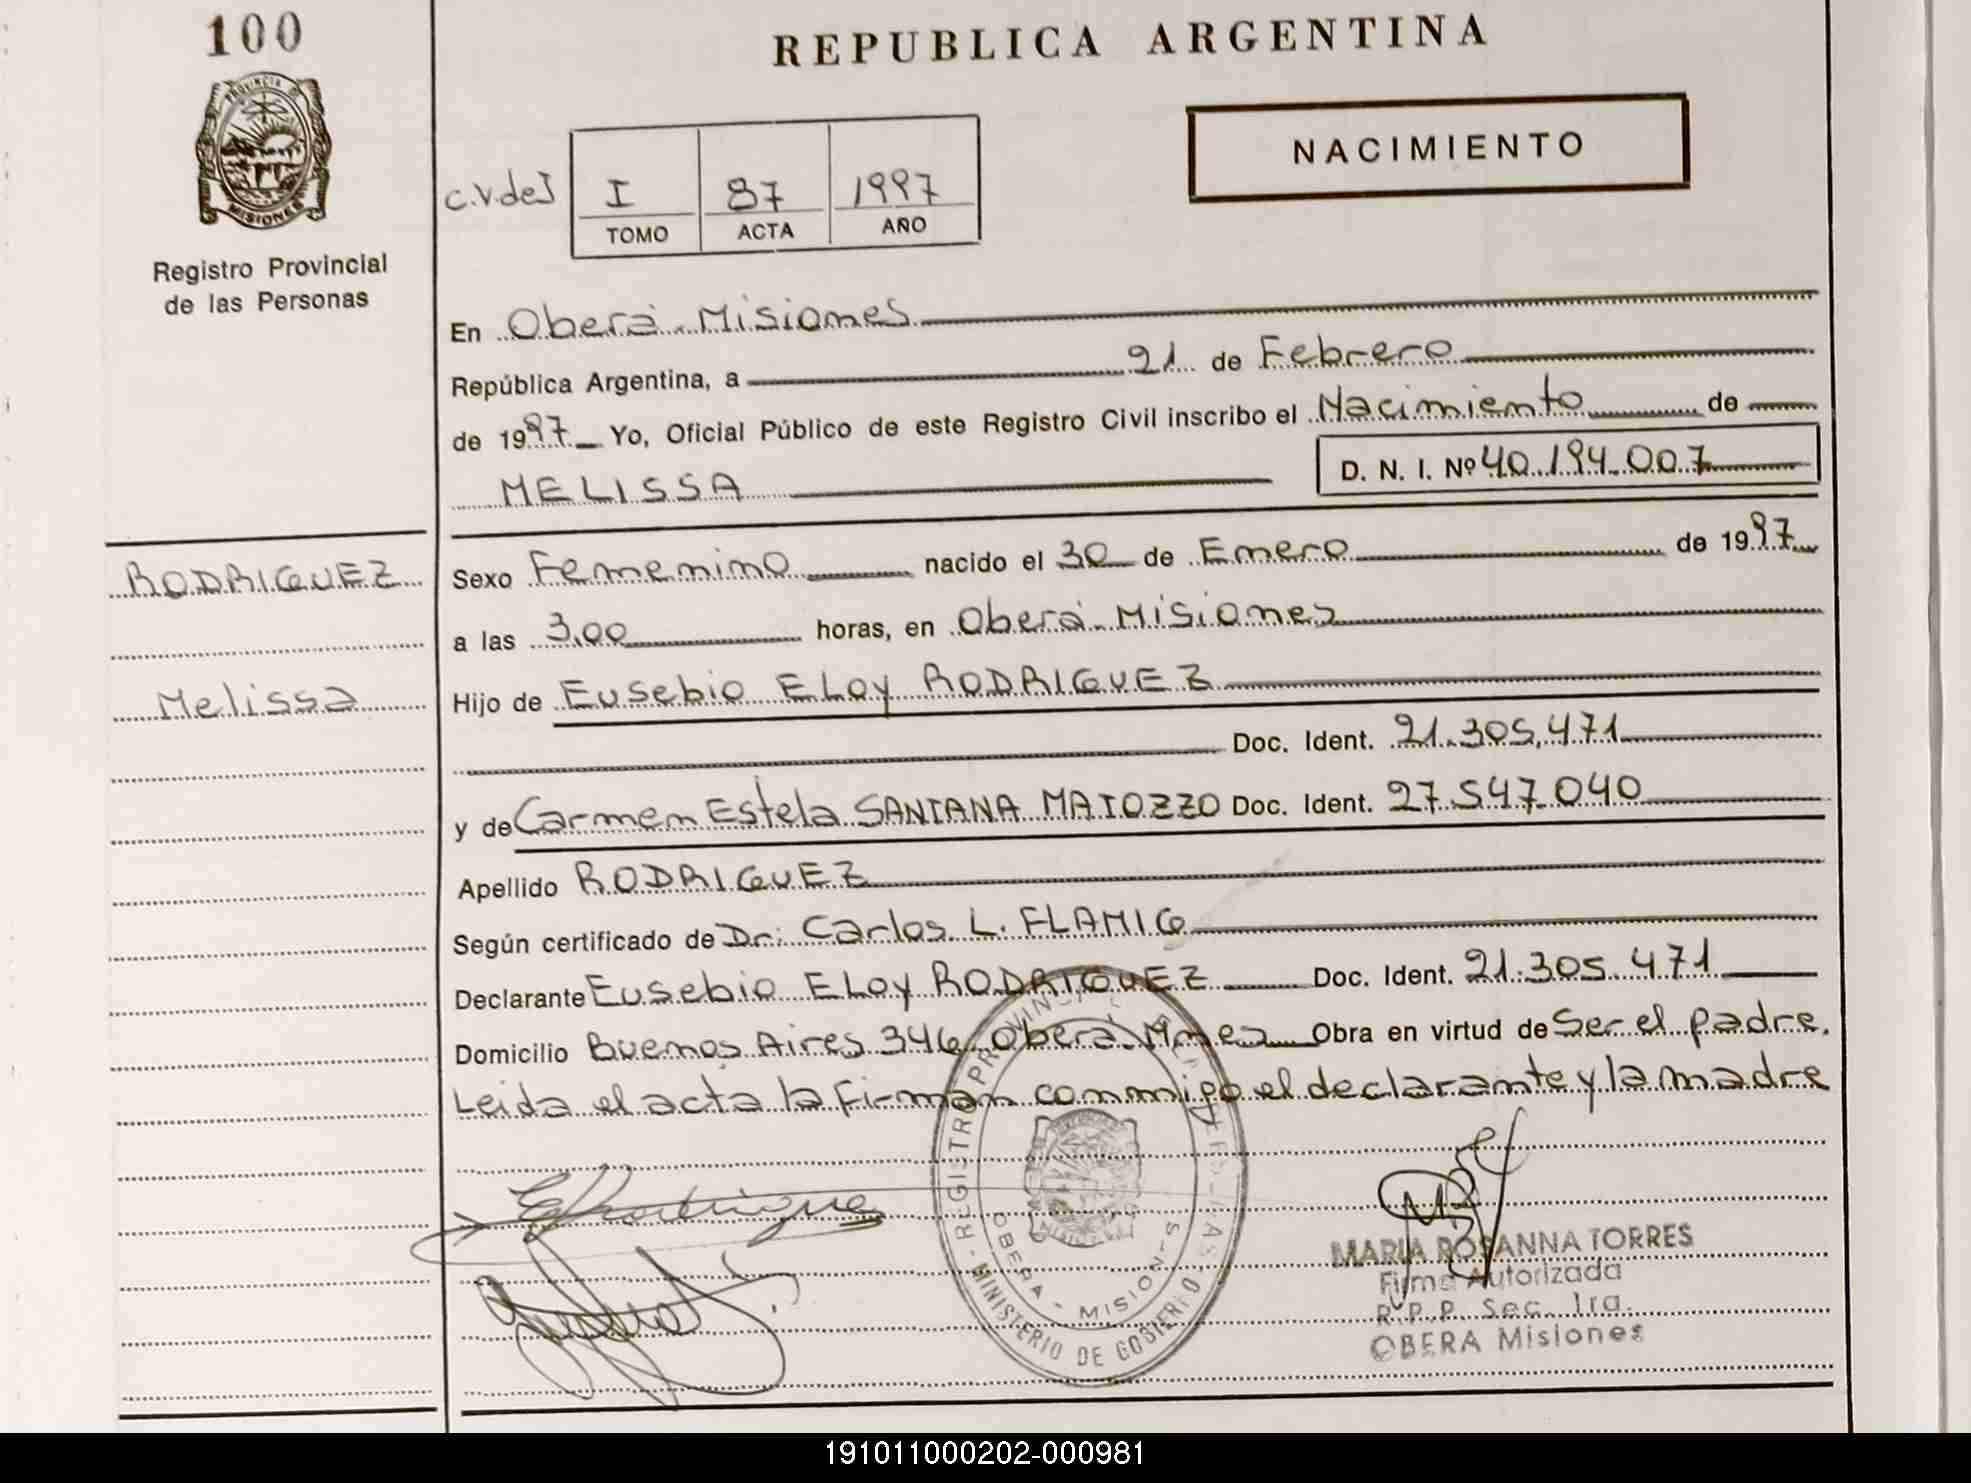 100
REPUBLICA ARGENTINA
NACIMIENTO
PROVINCIA DE
MISIONES
Registro Provincial
de las Personas
C.V.deJ
I 87 1997
TOMO ACTA AÑO
En Oberá. Misiones
República Argentina, a 21 de Febrero
de 1997 Yo, Oficial Público de este Registro Civil inscribo el Nacimiento de
MELISSA D. N. I. Nº 40.194.007
RODRIGUEZ
Melissa
Sexo Femenino nacido el 30 de Enero de 1997
a las 3,00 horas, en Oberá. Misiones
Hijo de Eusebio ELOY RODRIGUEZ
Doc. Ident. 21.305.471
y de Carmen Estela SANTANA MATOZZO Doc. Ident. 27.547.040
Apellido RODRIGUEZ
Según certificado de Dr: Carlos L. FLAMIG
Declarante Eusebio ELOY RODRIGUEZ Doc. Ident. 21.305.471
Domicilio Buenos Aires 346 Oberá Mnes Obra en virtud de Ser el padre.
Leida el acta la firman conmigo el declarante y la madre
ERodriguez
REGISTRO PROVINCIAL DE LAS PERSONAS
OBERA - MISIONES
MINISTERIO DE GOBIERNO
MARIA ROSANNA TORRES
Firma Autorizada
R.P.P. Sec. 1ra.
OBERA Misiones
191011000202-000981